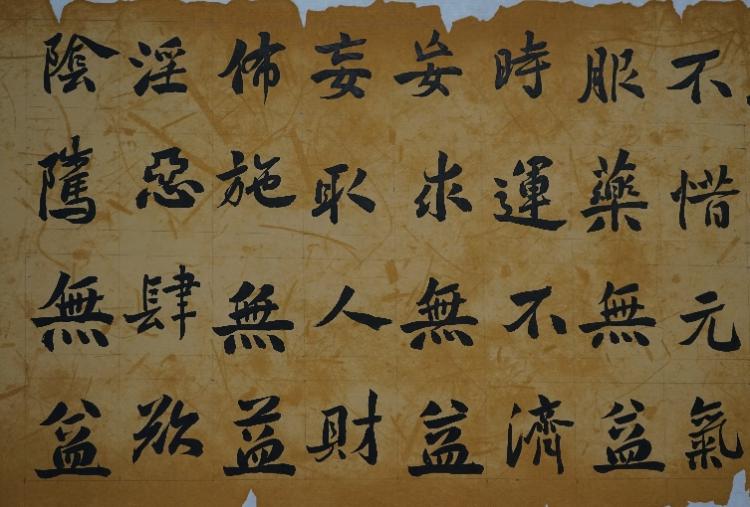 不惜元氣
服藥無益
時運不濟
妄求無益
妄取人財
佈施無益
淫惡肆欲
陰隲無益